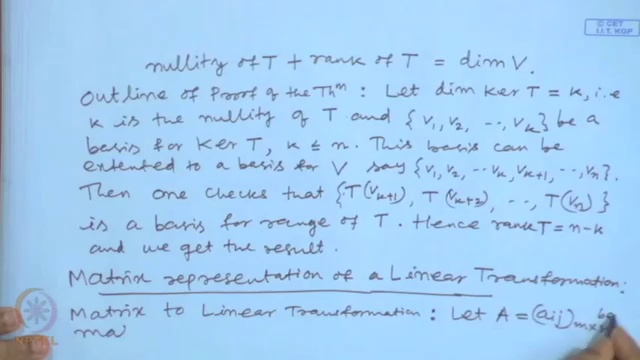 © CET
I.I.T. KGP
nullity of T + rank of T = dim V.
Outline of Proof of the Thm : Let dim ker T = k, i.e
k is the nullity of T and {v1, v2, ..., vk} be a
basis for Ker T, k ≤ n. This basis can be
extented to a basis for V say {v1, v2, ... vk, vk+1, ..., vn}.
Then one checks that {T(vk+1), T(vk+2), ..., T(vn)}
is a basis for range of T. Hence rank T = n-k
and we get the result.
Matrix representation of a Linear Transformation:
Matrix to Linear Transformation : Let A = (aij)m×n be
ma
NPTEL